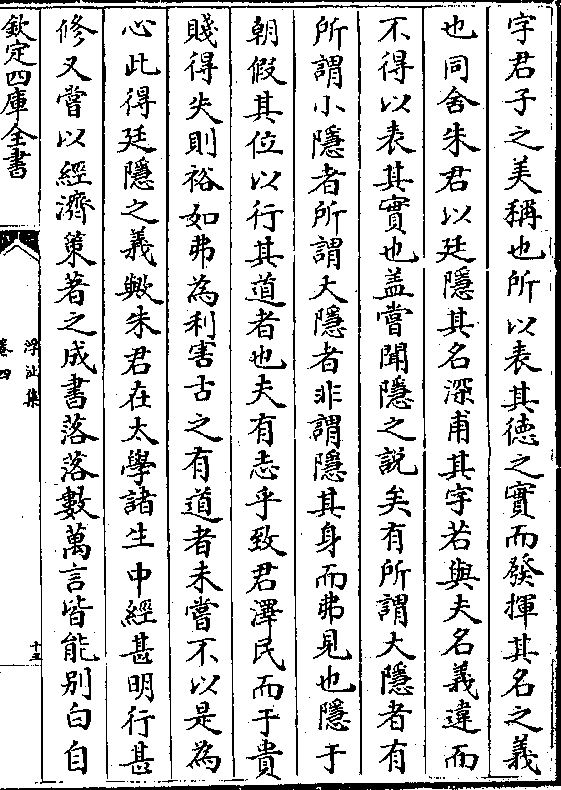 字君子之美稱也所以表其徳之實而發揮其名之義
也同舍朱君以廷隱其名深甫其字若與夫名義違而
不得以表其實也盖嘗聞隱之說矣有所謂大隱者有
所謂小隱者所謂大隱者非謂隱其身而弗見也隱于
朝假其位以行其道者也夫有志乎致君澤民而于貴
賤得失則裕如弗為利害古之有道者未嘗不以是為
心此得廷隱之義歟朱君在太學諸生中經甚明行甚
修又嘗以經濟策著之成書落落數萬言皆能别白自
欽定四庫全書
浮沚集
卷四
十五